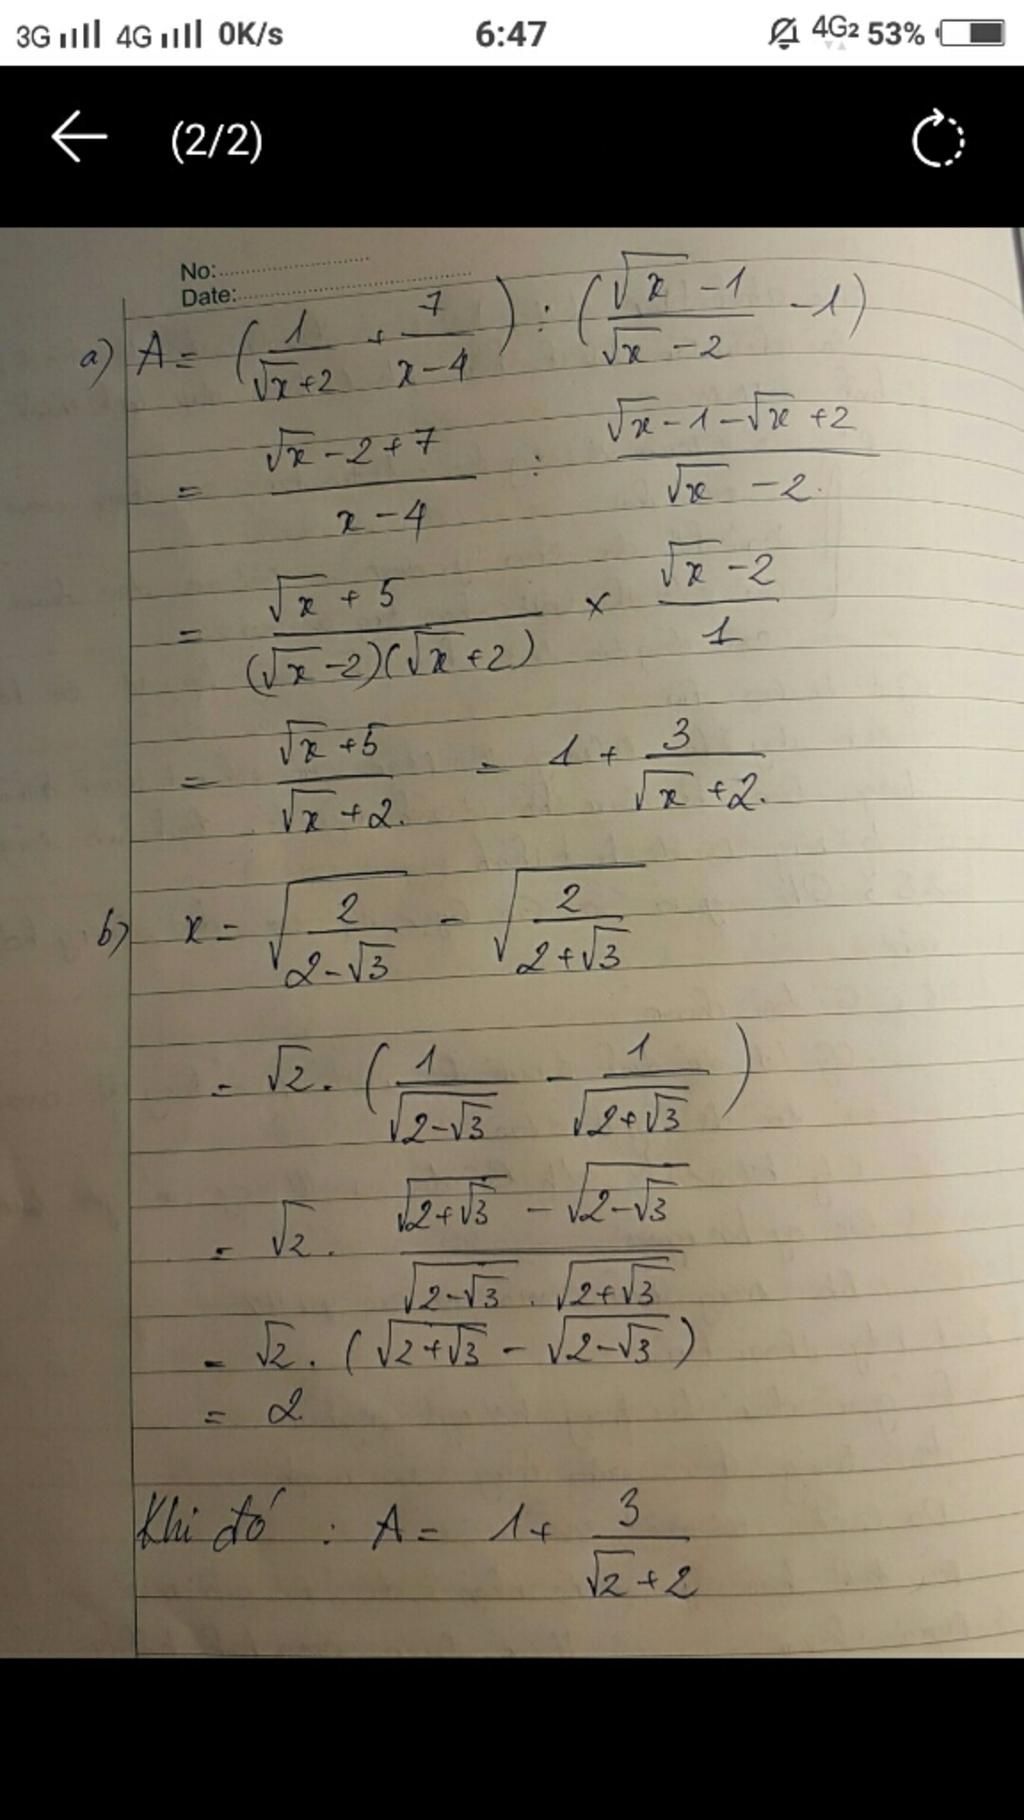 3G 4G 0K/s 6:47 4G2 53%
(2/2)
No:
Date:
a) A = (1/(√x+2) + 7/(x-4)) : ((√x-1)/(√x-2) - 1)
= (√x-2+7)/(x-4) : (√x-1-√x+2)/(√x-2)
= (√x+5)/((√x-2)(√x+2)) × (√x-2)/1
= (√x+5)/(√x+2) = 1 + 3/(√x+2).
b) x = √(2/(2-√3)) - √(2/(2+√3))
= √2 . (1/√(2-√3) - 1/√(2+√3))
= √2 . (√(2+√3) - √(2-√3))/(√(2-√3) . √(2+√3))
= √2 . (√(2+√3) - √(2-√3))
= 2
Khi đó : A = 1 + 3/(√2+2)